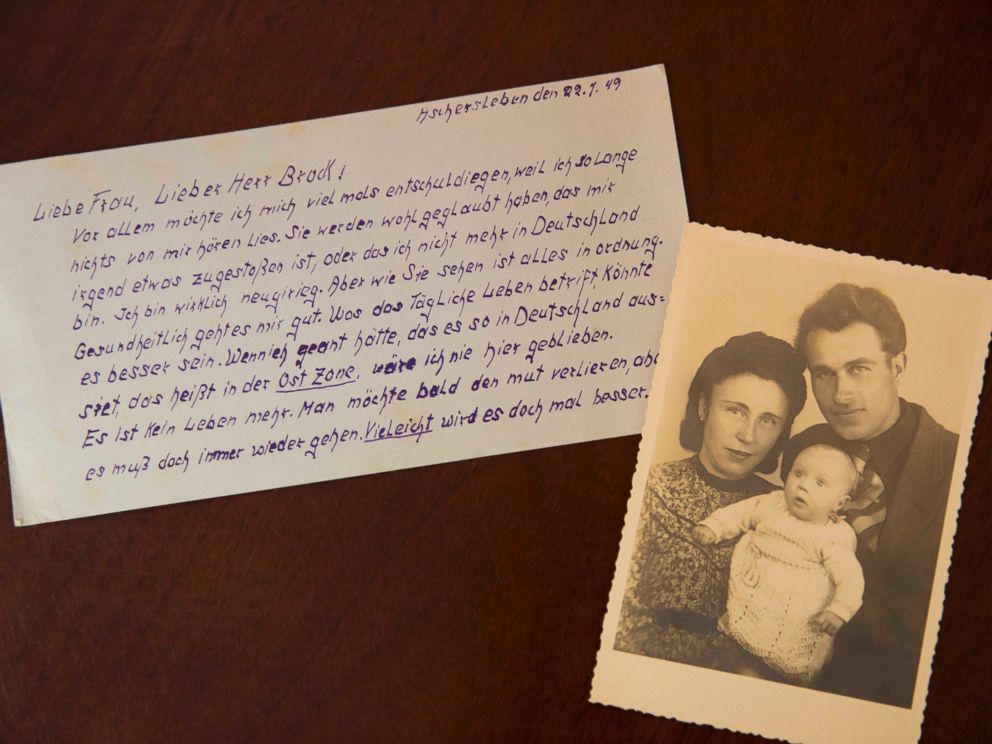 Aschersleben den 22.7.49
Liebe Frau, Lieber Herr Bruck!
Vor allem möchte ich mich viel mals entschuldiegen, weil ich so Lange
nichts von mir hören lies. Sie werden wohl geglaubt haben, das mir
irgend etwas zugestoßen ist, oder das ich nicht mehr in Deutschland
bin. Ich bin wirklich neugirieg. Aber wie Sie sehen ist alles in ordnung.
Gesundheitlich gehtes mir gut. Was das Tägliche Leben betrift, Könnte
es besser sein. Wennich geant hätte, das es so in Deutschland aus=
siet, das heißt in der Ost Zone, wäre ich nie hier geblieben.
Es ist Kein Leben mehr. Man möchte bald den mut verlieren, abe
es muß doch immer wieder gehen. Vieleicht wird es doch mal besser.